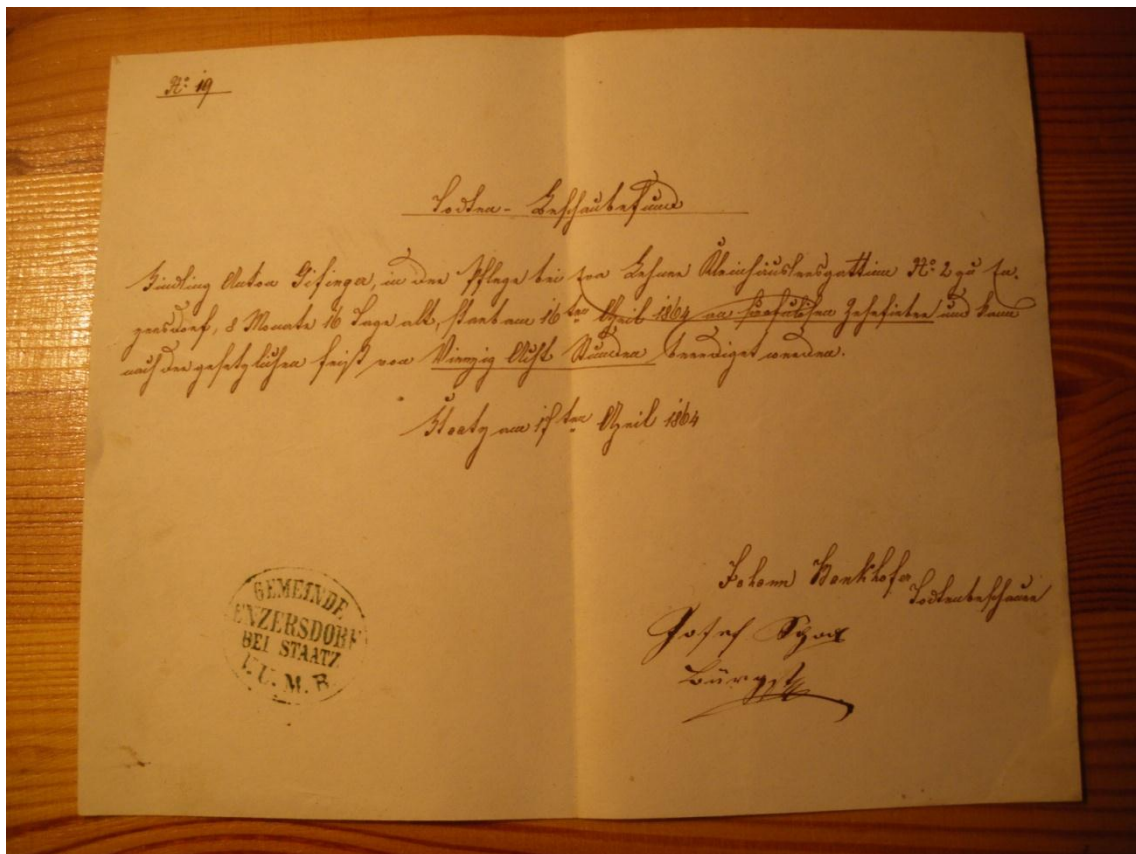 No 19
Todten-Beschaubefund
Findling Anton in der Pflege bei der Kleinhäuslersgattinn No 2 zu
8 Monate 16 Tage alt, starb am 16ten April 1864 an Zehrfieber und kann
nach der gesetzlichen Frist von Vierzig Acht Stunden beerdiget werden.
Staatz am 17ten April 1864
Johann
Todtenbeschauer
Josef
Bürgst
GEMEINDE
ENZERSDORF
BEI STAATZ
V.U.M.B